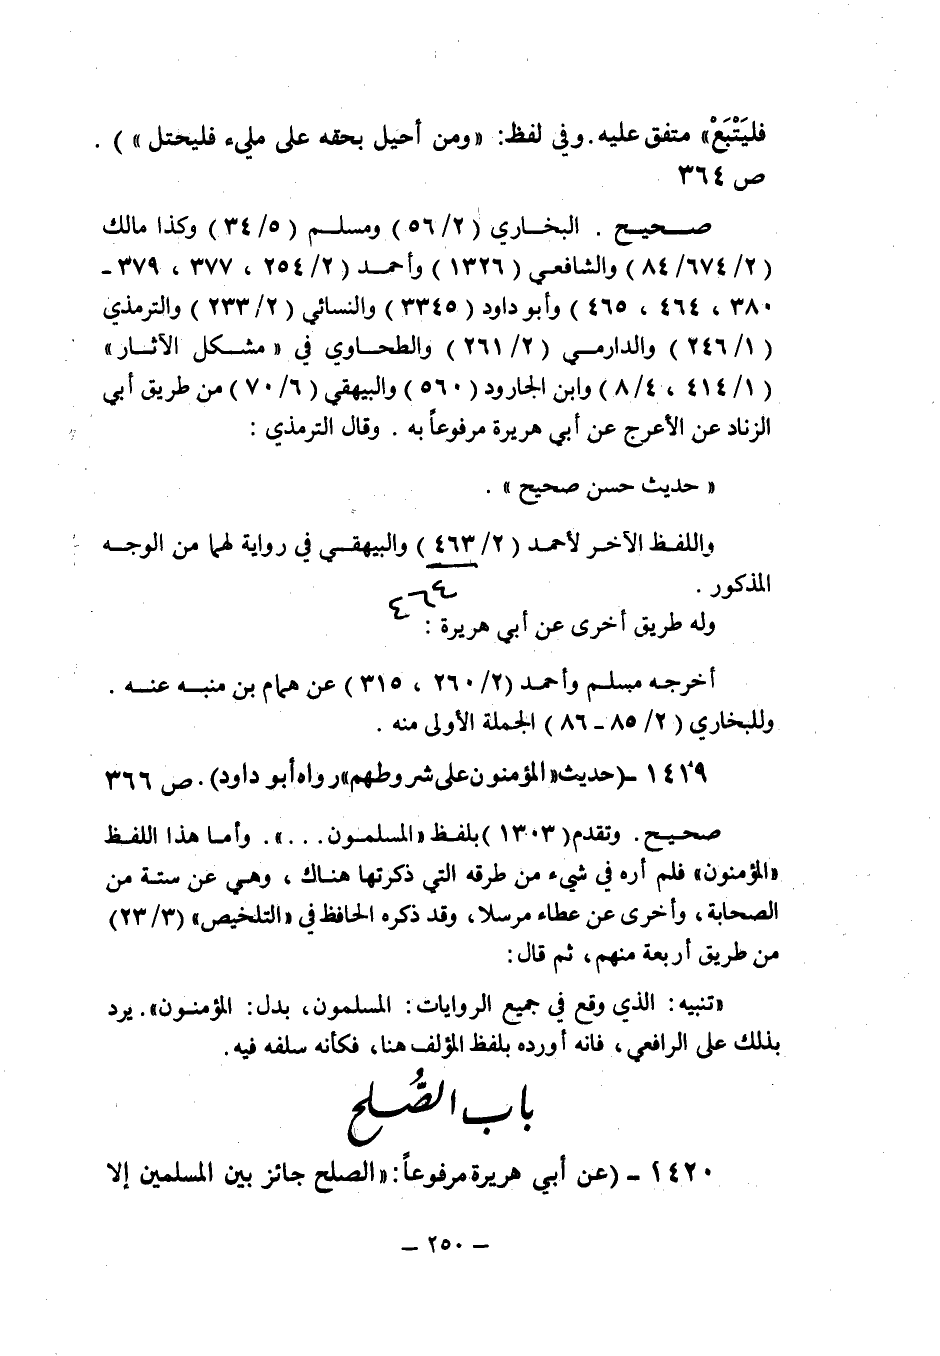 فليَتْبَعْ» متفق عليه . وفي لفظ: «ومن أحيل بحقه على مليء فليحتل» ) .
ص ٣٦٤
صـــحيـح . البخــاري ( ٥٦/٢ ) ومسلــم ( ٣٤/٥ ) وكذا مالك
( ٨٤/٦٧٤/٢ ) والشافعي ( ١٣٢٦ ) وأحمـد ( ٢٥٤/٢ ، ٣٧٧ ، ٣٧٩ ـ
٣٨٠ ، ٤٦٤ ، ٤٦٥ ) وأبو داود ( ٣٣٤٥ ) والنسائي ( ٢٣٣/٢ ) والترمذي
( ٢٤٦/١ ) والدارمـي ( ٢٦١/٢ ) والطحـاوي في « مشـكل الآثـار »
( ٤١٤/١ ، ٨/٤ ) وابن الجارود ( ٥٦٠ ) والبيهقي ( ٧٠/٦ ) من طريق أبي
الزناد عن الأعرج عن أبي هريرة مرفوعاً به . وقال الترمذي :
« حديث حسن صحيح » .
واللفـظ الآخـر لأحمـد ( ٤٦٣/٢ ) والبيهقـي في رواية لهما من الوجـه
المذكور .
٤٦٤
وله طريق أخرى عن أبي هريرة :
أخرجـه مسلـم وأحمـد (٢٦٠/٢ ، ٣١٥ ) عن همام بن منبـه عنـه .
وللبخاري ( ٨٥/٢ ـ ٨٦ ) الجملة الأولى منه .
١٤١٩ ـ (حديث «المؤمنون على شروطهم» رواه أبو داود) . ص ٣٦٦
صحيـح . وتقدم ( ١٣٠٣ ) بلفـظ «المسلمـون . . .» . وأمـا هذا اللفـظ
«المؤمنون» فلم أره في شيء من طرقه التي ذكرتها هناك ، وهـي عن ستـة من
الصحابة ، وأخرى عن عطاء مرسلا ، وقد ذكره الحافظ في «التلخيص» (٢٣/٣)
من طريق أربعة منهم ، ثم قال :
«تنبيه : الذي وقع في جميع الروايات : المسلمون ، بدل : المؤمنـون» . يرد
بذلك على الرافعي ، فانه أورده بلفظ المؤلف هنا ، فكأنه سلفه فيه .
باب الصُّلح
١٤٢٠ ـ (عن أبي هريرة مرفوعاً : «الصلح جائز بين المسلمين إلا
ـ ٢٥٠ ـ